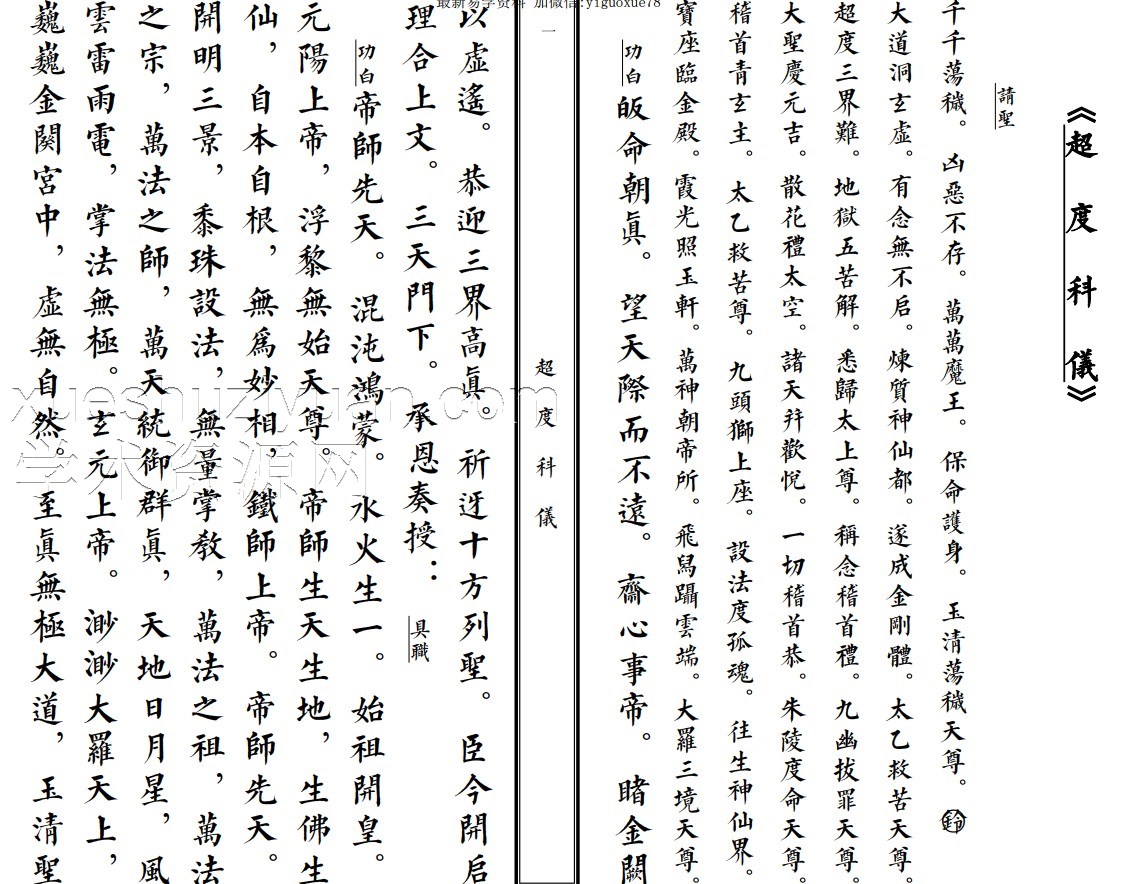 最新易学资料 加微信:yiguoxue78
《超度科儀》
請聖
千千蕩穢。凶惡不存。萬萬魔王。保命護身。玉清蕩穢天尊。鈴
大道洞玄虛。有念無不启。煉質神仙都。遂成金剛體。太乙救苦天尊。
超度三界難。地獄五苦解。悉歸太上尊。稱念稽首禮。九幽拔罪天尊。
大聖慶元吉。散花禮太空。諸天幷歡悅。一切稽首恭。朱陵度命天尊。
稽首青玄主。太乙救苦尊。九頭獅上座。設法度孤魂。往生神仙界。
寶座臨金殿。霞光照玉軒。萬神朝帝所。飛舄躡雲端。大羅三境天尊。
功白 皈命朝眞。望天際而不遠。齋心事帝。睹金闕
一
超度科儀
以虛遙。恭迎三界高眞。祈迓十方列聖。臣今開启
理合上文。三天門下。承恩奏授：具職
功白 帝師先天。混沌鴻蒙。水火生一。始祖開皇。
元陽上帝，浮黎無始天尊。帝師生天生地，生佛生
仙，自本自根，無爲妙相，鐵師上帝。帝師先天。
開明三景，黍珠設法，無量掌教，萬法之祖，萬法
之宗，萬法之師，萬天統御群眞，天地日月星，風
雲雷雨電，掌法無極。玄元上帝。渺渺大羅天上，
巍巍金闕宮中，虛無自然。至眞無極大道，玉清聖
xueshuziyuan.com
学术资源网